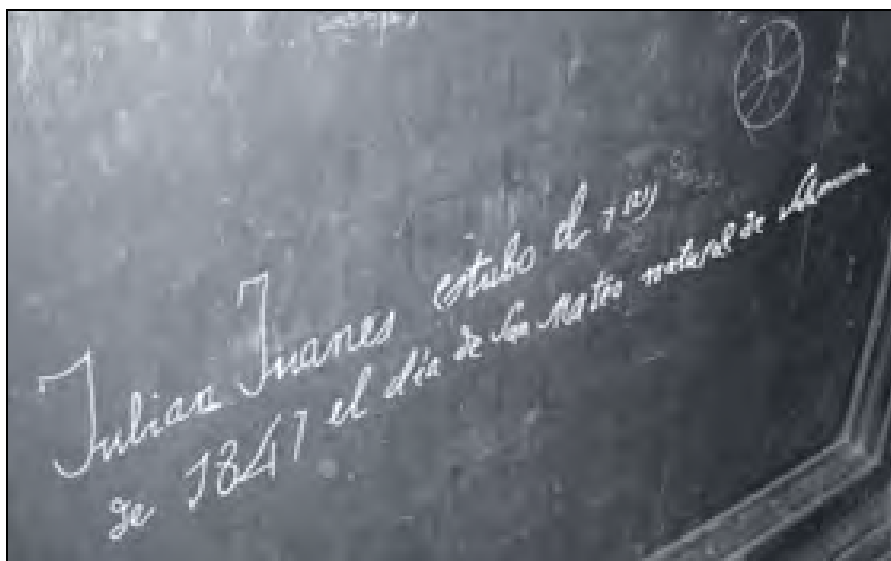 Julian Juanes estubo el
de 1847 el día de San Mateo natural de